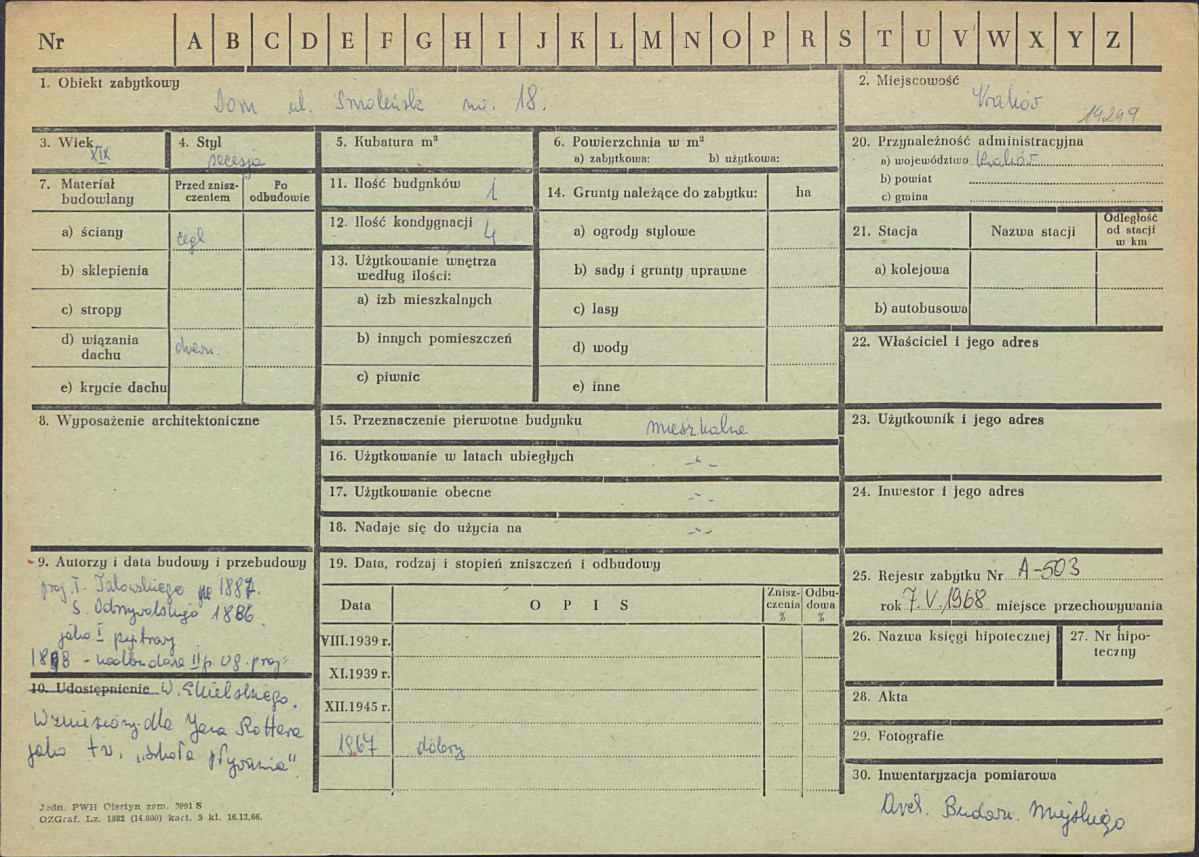 Nr A B C D E F G H I J K L M N O P R S T U V W X Y Z
1. Obiekt zabytkowy
Dom ul. Smoleńsk nr. 18.
2. Miejscowość
Kraków
14299
3. Wiek
XIX
4. Styl
secesja
5. Kubatura m³
6. Powierzchnia w m²
a) zabytkowa: b) użytkowa:
7. Materiał budowlany
Przed znisz-
czeniem
Po
odbudowie
a) ściany cegł
b) sklepienia
c) stropy
d) wiązania
dachu drewn.
e) krycie dachu
11. Ilość budynków 1
12. Ilość kondygnacji 4
13. Użytkowanie wnętrza
według ilości:
a) izb mieszkalnych
b) innych pomieszczeń
c) piwnic
14. Grunty należące do zabytku: ha
a) ogrody stylowe
b) sady i grunty uprawne
c) lasy
d) wody
e) inne
20. Przynależność administracyjna
a) województwo Kraków
b) powiat
c) gmina
21. Stacja Nazwa stacji
Odległość
od stacji
w km
a) kolejowa
b) autobusowa
22. Właściciel i jego adres
8. Wyposażenie architektoniczne
15. Przeznaczenie pierwotne budynku mieszkalne
16. Użytkowanie w latach ubiegłych -"-
17. Użytkowanie obecne -"-
18. Nadaje się do użycia na -"-
23. Użytkownik i jego adres
24. Inwestor i jego adres
9. Autorzy i data budowy i przebudowy
proj. T. Talowskiego 1887.
S. Odrzywolskiego 1886.
jako I piętrowy
nadbudowa II p. wg. proj.
10. Udostępnienie W. Ekielskiego.
Wzniesiony dla Jana Rottera
jako tzw. „szkoła pływania".
19. Data, rodzaj i stopień zniszczeń i odbudowy
Data
O P I S
Znisz-
czenia
%
Odbu-
dowa
%
VIII.1939 r.
XI.1939 r.
XII.1945 r.
1967 dobry
25. Rejestr zabytku Nr A-503
rok 7.V.1968 miejsce przechowywania
26. Nazwa księgi hipotecznej
27. Nr hipo-
teczny
28. Akta
29. Fotografie
30. Inwentaryzacja pomiarowa
Arch. Budown. Miejskiego
Jedn. PWH Olsztyn zam. 3991 S
OZGraf. Lz. 1882 (14.000) kart. 5 kl. 16.12.66.